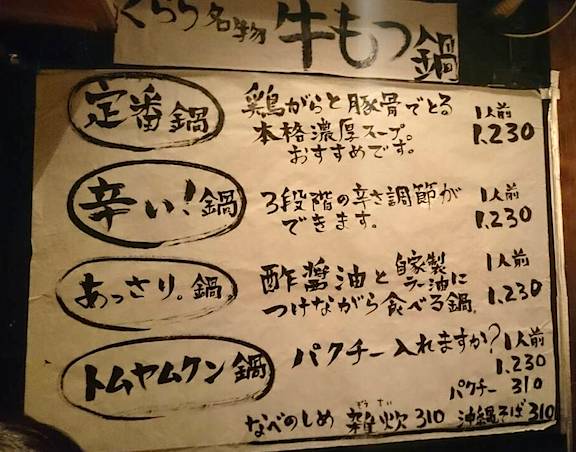 くらら名物 牛もつ鍋
定番鍋
鶏がらと豚骨でとる
本格濃厚スープ。
おすすめです。
1人前
1,230
辛い！鍋
3段階の辛さ調節が
できます。
1人前
1,230
あっさり。鍋
酢醤油と自家製ラー油に
つけながら食べる鍋
1人前
1,230
トムヤムクン鍋
パクチー入れますか？
1人前
1,230
パクチー 310
なべのしめ 雑炊 310 沖縄そば 310
ぞうすい